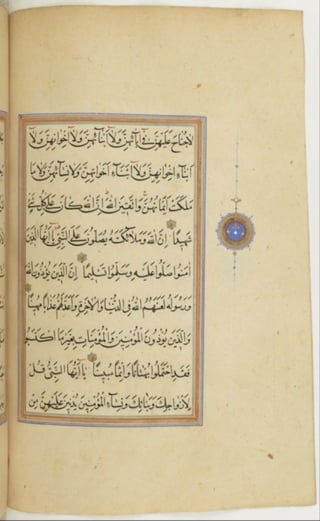 لا جناح عليهن في آبائهن ولا أبنائهن ولا إخوانهن ولا
أبناء إخوانهن ولا أبناء أخواتهن ولا نسائهن ولا ما
ملكت أيمانهن واتقين الله إن الله كان على كل شيء
شهيدا إن الله وملائكته يصلون على النبي يا أيها الذين
آمنوا صلوا عليه وسلموا تسليما إن الذين يؤذون الله
ورسوله لعنهم الله في الدنيا والآخرة وأعد لهم عذابا مهينا
والذين يؤذون المؤمنين والمؤمنات بغير ما اكتسبوا
فقد احتملوا بهتانا وإثما مبينا يا أيها النبي قل
لأزواجك وبناتك ونساء المؤمنين يدنين عليهن من